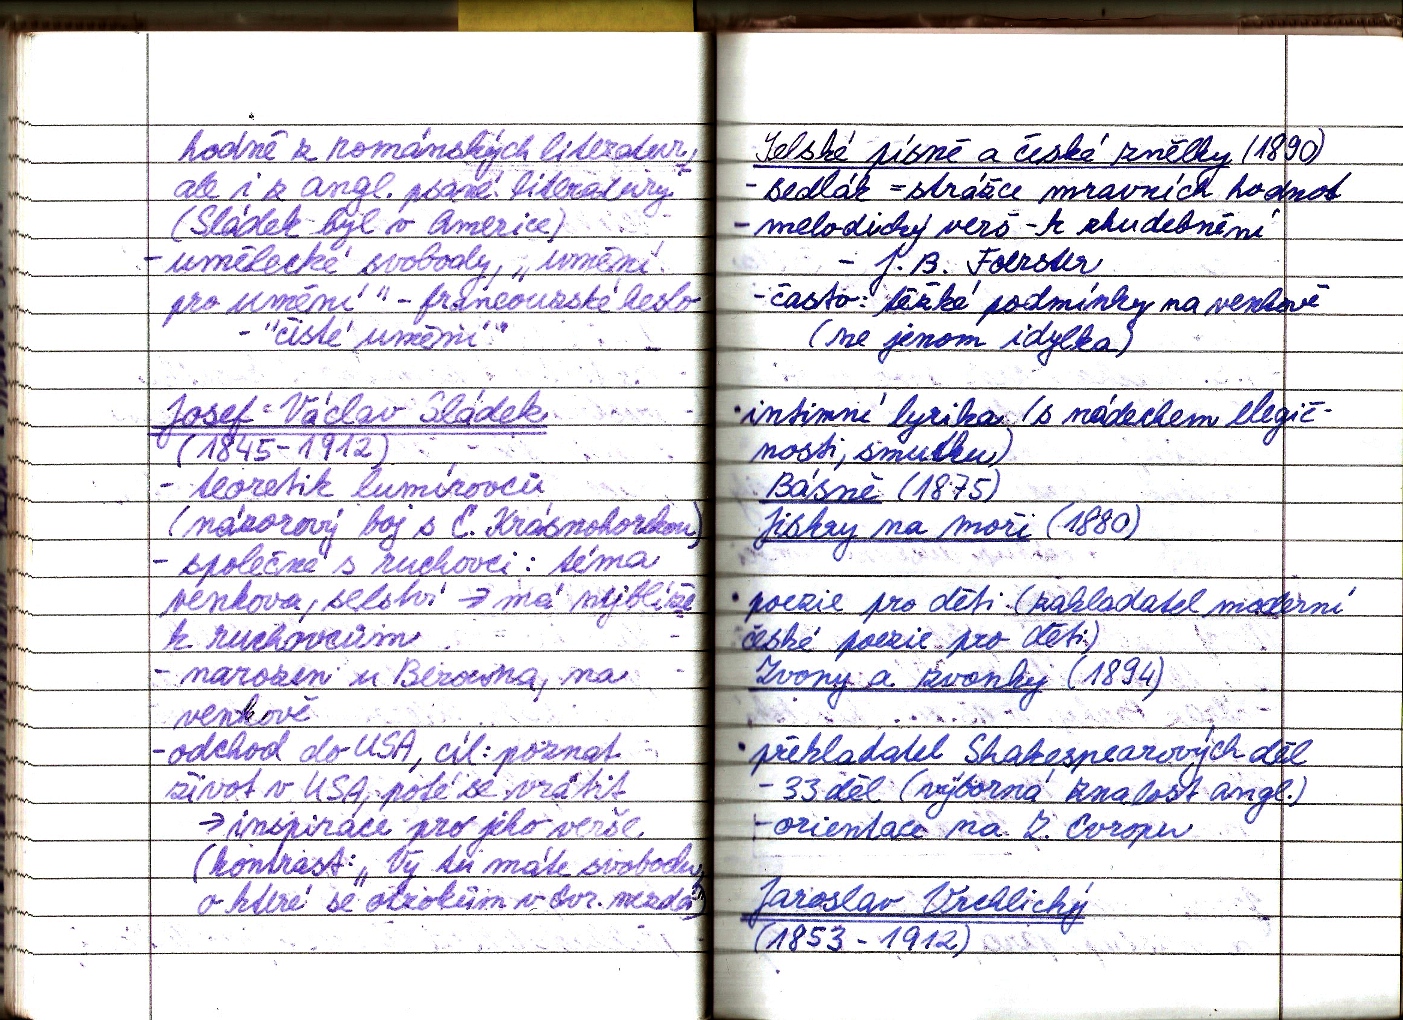 hodně z románských literatur,
ale i z angl. psané literatury
(Sládek byl v Americe)
- umělecké svobody, „umění
pro umění" - francouzské heslo
- "čisté umění"
Josef Václav Sládek
(1845-1912)
- teoretik lumírovců
(názorový boj s E. Krásnohorskou)
- společné s ruchovci: téma
venkova, selství → má nejblíže
k ruchovcům
- narozen u Berouna, na
venkově
- odchod do USA, cíl: poznat
život v USA, poté se vrátit
→ inspirace pro jeho verše
(kontrast: „Vy tu máte svobodu,
o které se otrokům v Evr. nezdá")
Selské písně a české znělky (1890)
- sedlák = strážce mravních hodnot
- melodický verš - k zhudebnění
- J. B. Foerster
- často: těžké podmínky na venkově
(ne jenom idylka)
• intimní lyrika (s nádechem elegič-
nosti, smutku)
Básně (1875)
Jiskry na moři (1880)
• poezie pro děti (zakladatel moderní
české poezie pro děti)
Zvony a zvonky (1894)
• překladatel Shakespearových děl
- 33 děl (výborná znalost angl.)
- orientace na Z. Evropu
Jaroslav Vrchlický
(1853-1912)